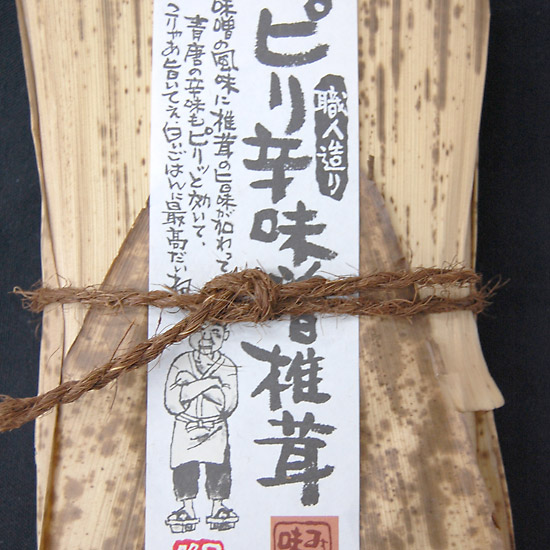 職人造り
ピリ辛味噌椎茸
味噌の風味に椎茸の旨味が加わって
青唐の辛味もピリッと効いて、
こりゃあ旨いてえ、白いごはんに最高だいね
味